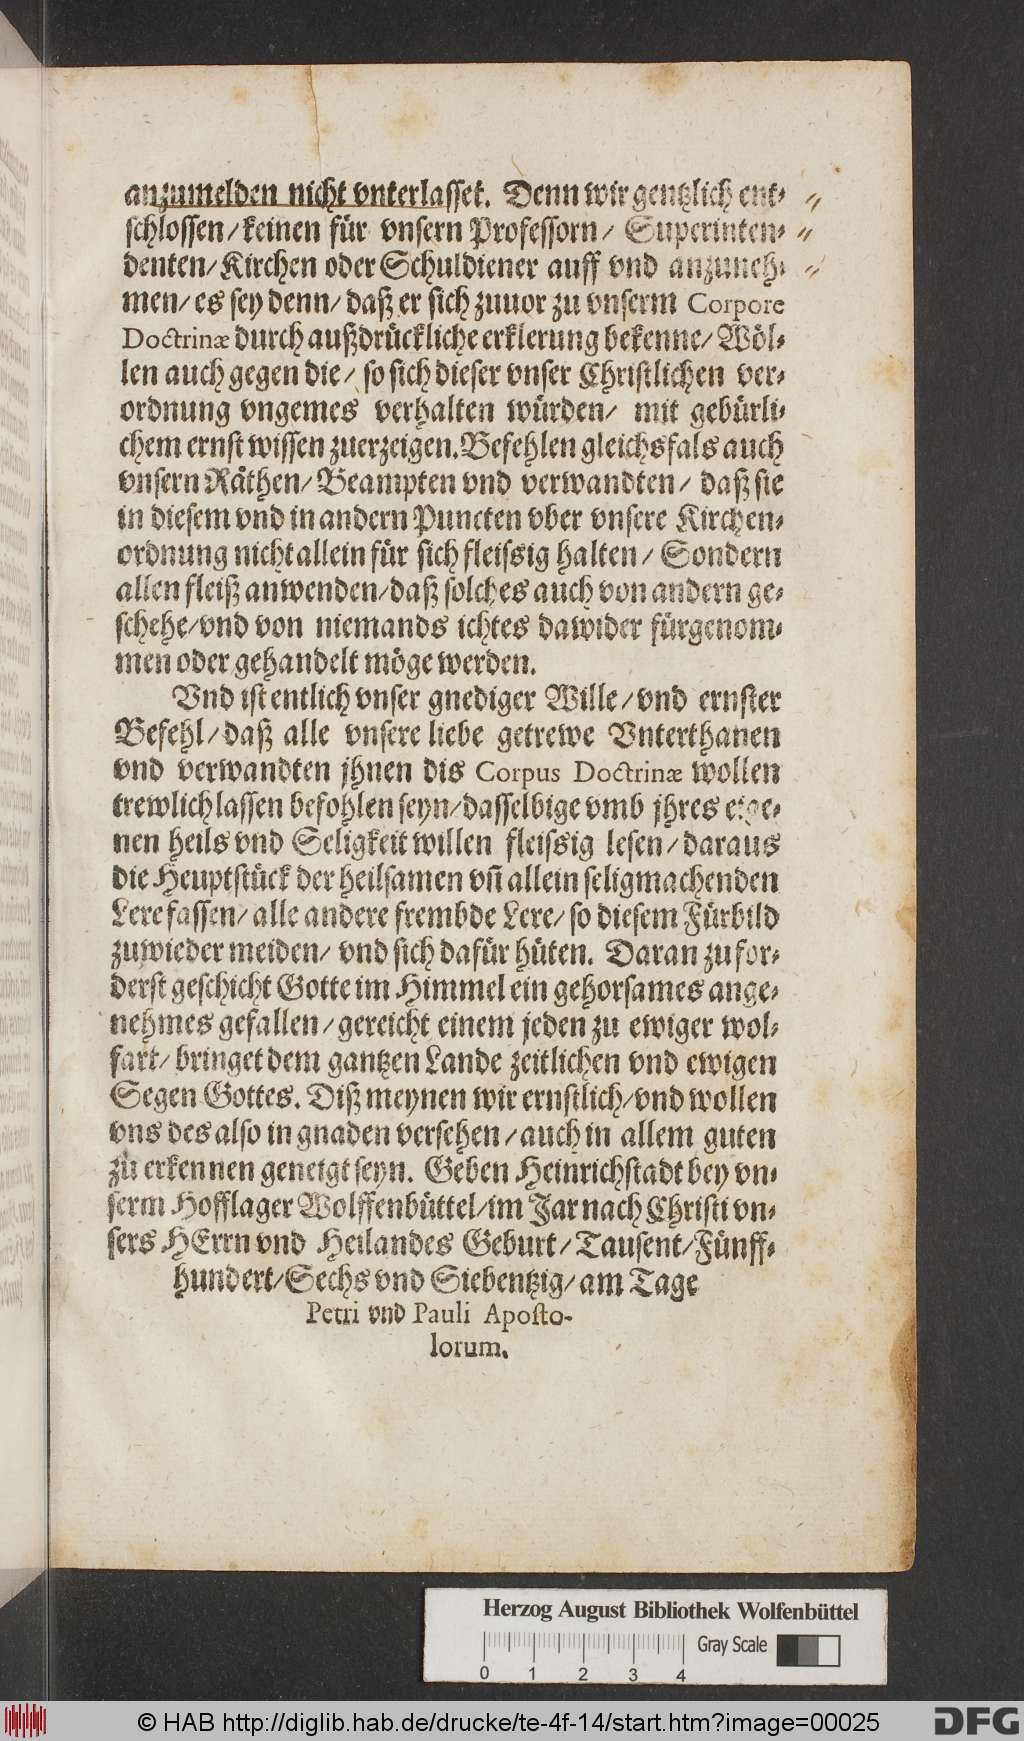 anzumelden nicht vnterlasset. Denn wir gentzlich ent⸗ 〃
schlossen/ keinen für vnsern Professorn/ Superinten⸗ 〃
denten/ Kirchen oder Schuldiener auff vnd anzuneh⸗ 〃
men/ es sey denn/ daß er sich zuuor zu vnserm Corpore
Doctrinæ durch außdrückliche erklerung bekenne/ Wöl⸗
len auch gegen die/ so sich dieser vnser Christlichen ver⸗
ordnung vngemes verhalten würden/ mit gebürli⸗
chem ernst wissen zuerzeigen. Befehlen gleichsfals auch
vnsern Räthen/ Beampten vnd verwandten/ daß sie
in diesem vnd in andern Puncten vber vnsere Kirchen⸗
ordnung nicht allein für sich fleissig halten/ Sondern
allen fleiß anwenden/ daß solches auch von andern ge⸗
schehe/ vnd von niemands ichtes dawider fürgenom⸗
men oder gehandelt möge werden.
Vnd ist entlich vnser gnediger Wille/ vnd ernster
Befehl/ daß alle vnsere liebe getrewe Vnterthanen
vnd verwandten jhnen dis Corpus Doctrinæ wollen
trewlich lassen befohlen seyn/ dasselbige vmb jhres eige⸗
nen heils vnd Seligkeit willen fleissig lesen/ daraus
die Heuptstück der heilsamen vñ allein seligmachenden
Lere fassen/ alle andere frembde Lere/ so diesem Fürbild
zuwieder meiden/ vnd sich dafür hüten. Daran zu for⸗
derst geschicht Gotte im Himmel ein gehorsames ange⸗
nehmes gefallen/ gereicht einem jeden zu ewiger wol⸗
fart/ bringet dem gantzen Lande zeitlichen vnd ewigen
Segen Gottes. Diß meynen wir ernstlich/ vnd wollen
vns des also in gnaden versehen/ auch in allem guten
zu erkennen geneigt seyn. Geben Heinrichstadt bey vn⸗
serm Hofflager Wolffenbüttel/ im Jar nach Christi vn⸗
sers HErrn vnd Heilandes Geburt/ Tausent/ Fünff⸗
hundert/ Sechs vnd Siebentzig/ am Tage
Petri vnd Pauli Aposto-
lorum.
Herzog August Bibliothek Wolfenbüttel
Gray Scale
0 1 2 3 4
© HAB http://diglib.hab.de/drucke/te-4f-14/start.htm?image=00025
DFG